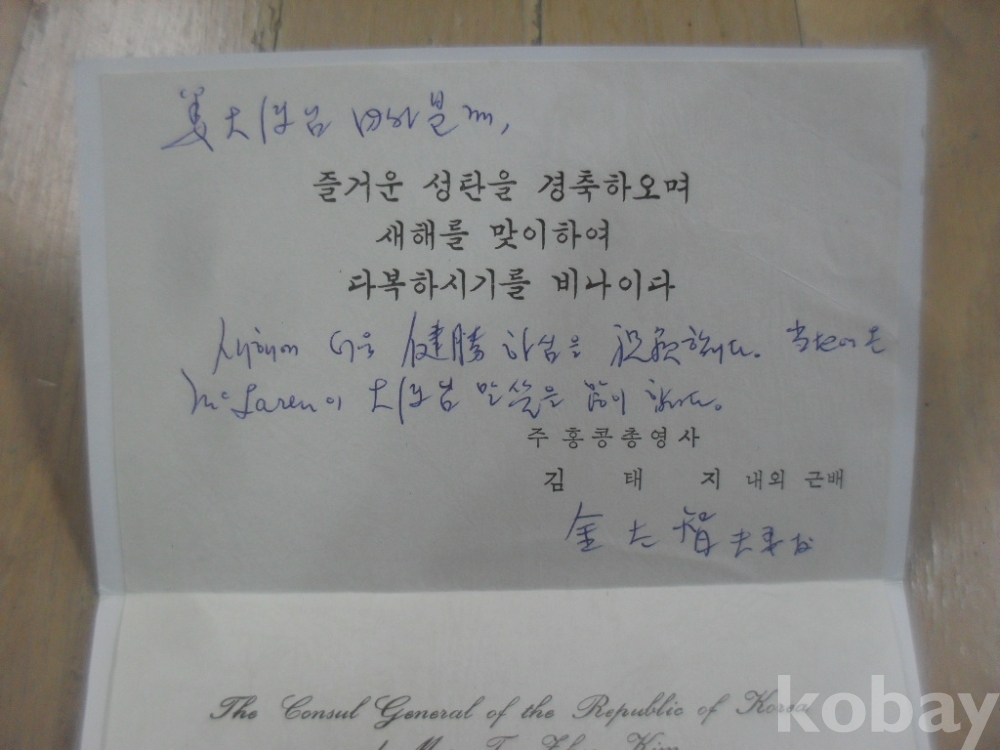 姜大使님 내외분께,
즐거운 성탄을 경축하오며
새해를 맞이하여
다복하시기를 비나이다
새해에 더욱 健勝하심을 祝願합니다.
McLaren이 大使님 말씀을 많이 합니다.
주홍콩총영사
김 태 지 내외 근배
金太智
The Consul General of the Republic of Korea
kobay